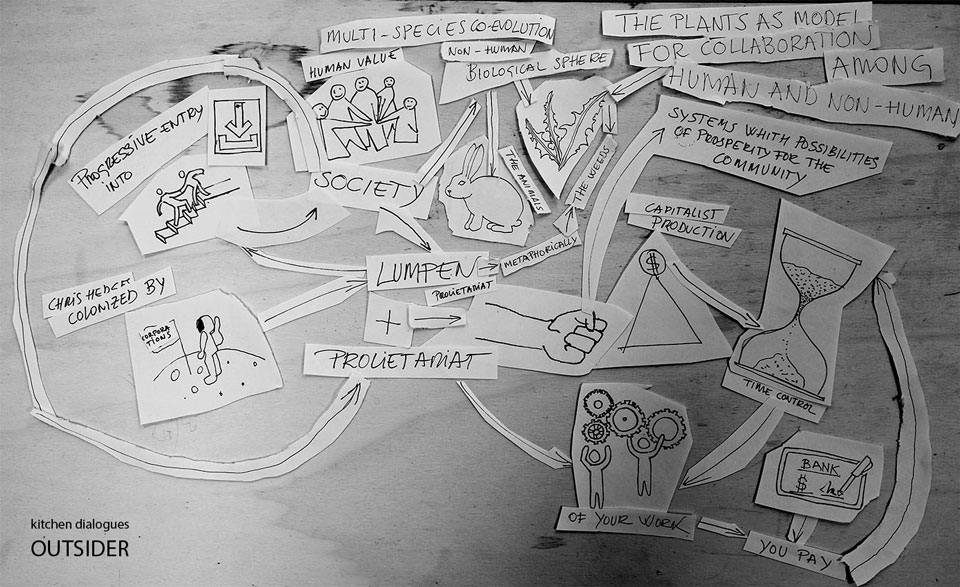 MULTI-SPECIES CO-EVOLUTION
NON-HUMAN
BIOLOGICAL SPHERE
THE PLANTS AS MODEL
FOR COLLABORATION
AMONG
HUMAN AND NON-HUMAN
SYSTEMS WHITH POSSIBILITIES
OF PROSPERITY FOR THE
COMMUNITY
HUMAN VALUE
PROGRESSIVE ENTRY
INTO
SOCIETY
THE ANIMALS
THE WEEDS
METAPHORICALLY
CAPITALIST
PRODUCTION
$
LUMPEN
PROLIETARIAT
+
PROLIETARIAT
CHRIS
COLONIZED BY
CORPORA
TIONS
TIME CONTROL
OF YOUR WORK
BANK
$
YOU PAY
kitchen dialogues
OUTSIDER